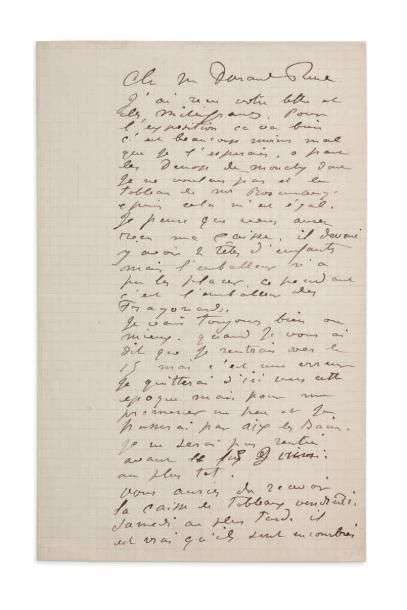 Ch M Durand Ruel
J'ai reçu votre lettre et
les mille francs. Pour
l'exposition ça va bien
c'est beaucoup moins mal
que je l'espérais, à part
les Danses de
Je ne voulais pas et le
tableau de
cela m'est égal.
Je pense que vous avez
reçu ma caisse, il devait
y avoir 2 têtes d'enfants
mais l'emballeur n'a
pu les placer, cependant
c'est l'emballeur des
Fragonards.
Je vais toujours bien ou
mieux. quand je vous ai
dit que je rentrais vers le
15 mai c'est une erreur
Je quitterai d'ici vers cette
époque mais pour me
promener un peu et je
passerai par aix les Bains.
Je ne serai pas rentré
avant le
au plus tot.
Vous auriez du recevoir
la caisse de tableaux vendredi.
Samedi au plus tard. il
est vrai qu'ils sont encombrés